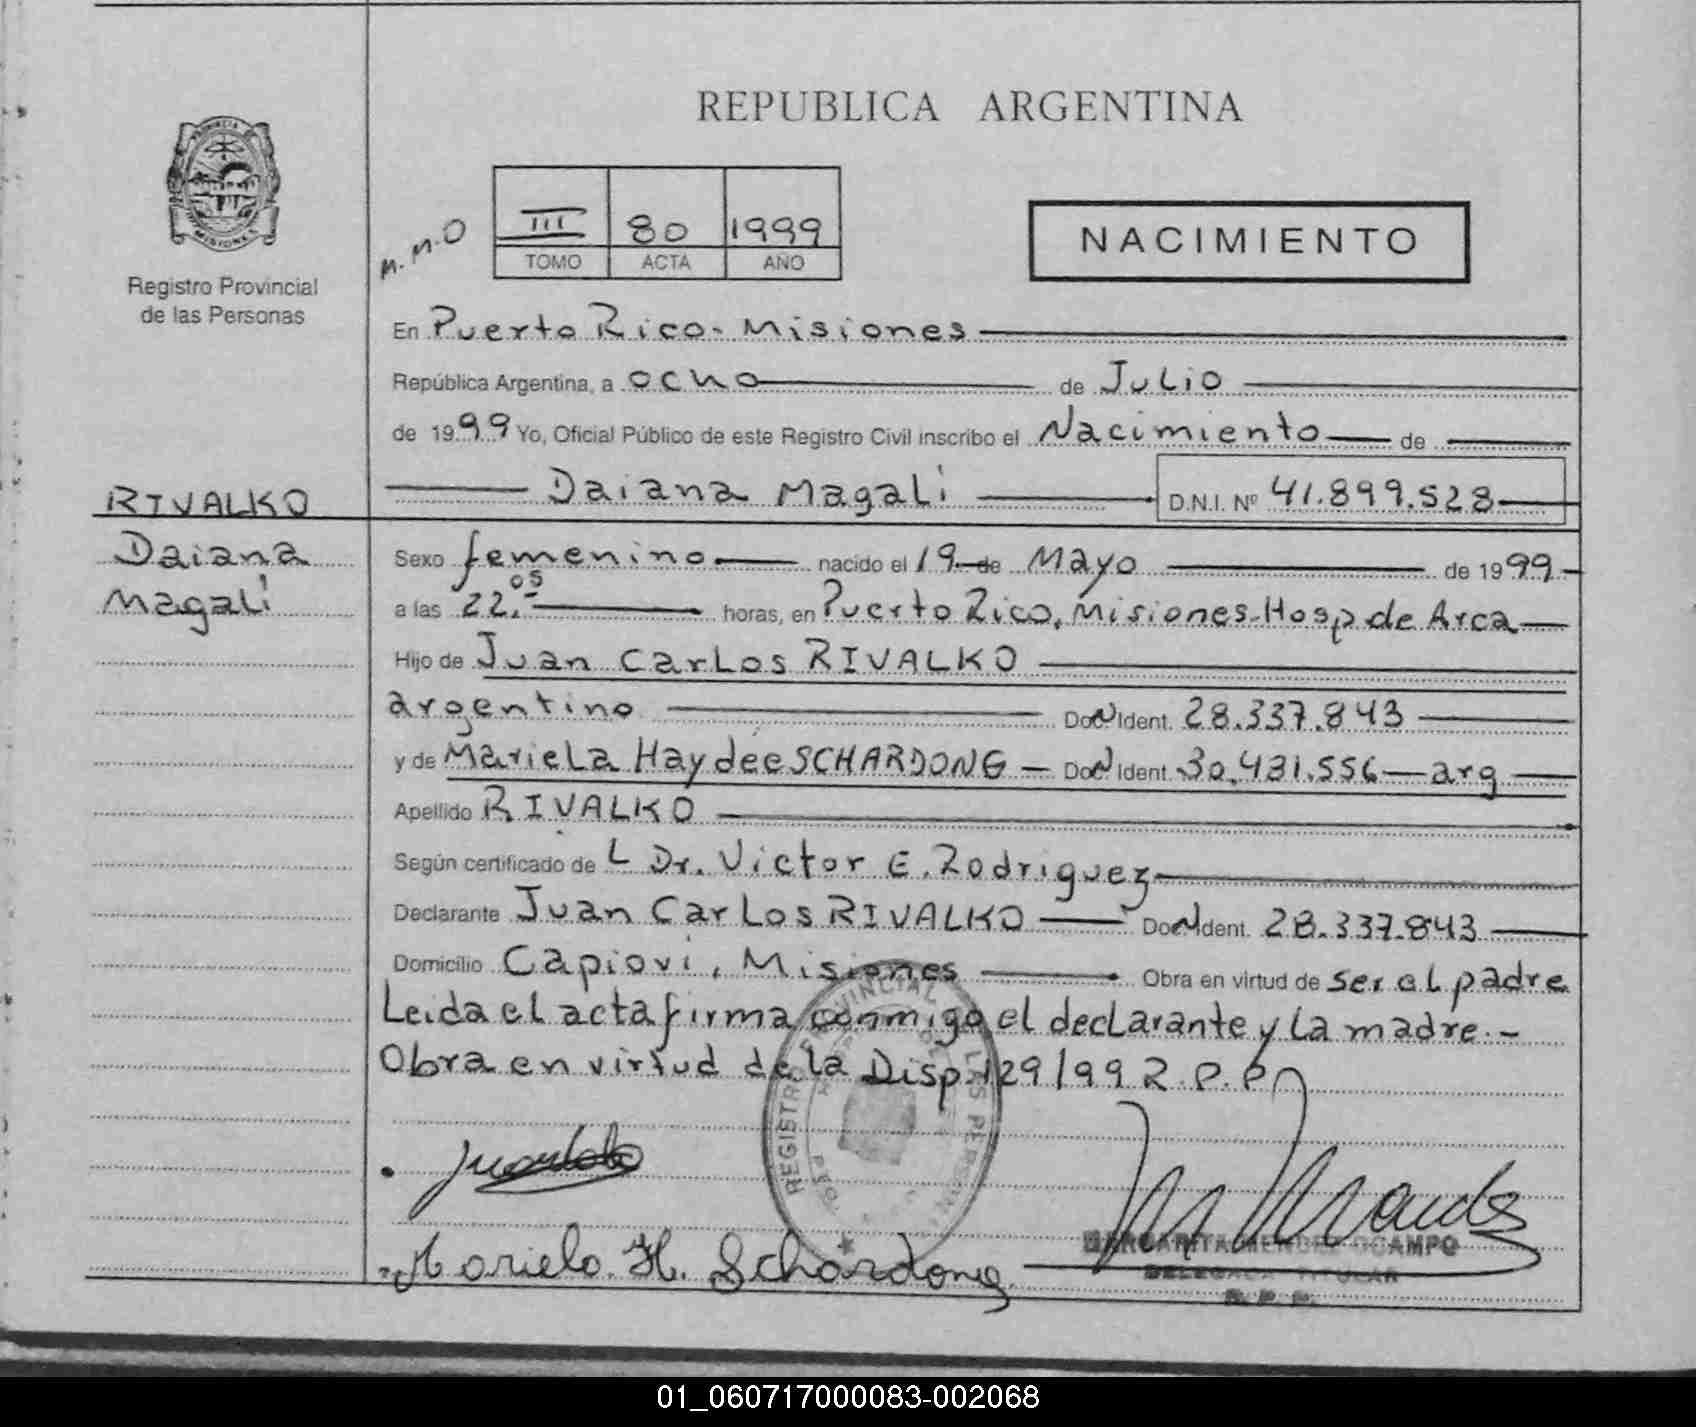 REPUBLICA ARGENTINA
PROVINCIA DE
MISIONES
Registro Provincial
de las Personas
M.M.O
III 80 1999
TOMO ACTA AÑO
NACIMIENTO
En Puerto Rico - Misiones
República Argentina, a ocho de Julio
de 1999 Yo, Oficial Público de este Registro Civil inscribo el Nacimiento de
Daiana Magali D.N.I. Nº 41.899.528
RIVALKO
Daiana
Magali
Sexo femenino nacido el 19 de Mayo de 1999
a las 22.05 horas, en Puerto Rico, Misiones - Hosp de Arca
Hijo de Juan Carlos RIVALKO
argentino Doc N Ident. 28.337.843
y de Mariela Haydee SCHARDONG Doc N Ident. 30.431.556 arg
Apellido RIVALKO
Según certificado de L Dr. Victor E. Rodriguez
Declarante Juan Carlos RIVALKO Doc N Ident. 28.337.843
Domicilio Capiovi, Misiones Obra en virtud de ser el padre
Leida el acta firma conmigo el declarante y la madre.-
Obra en virtud de la Disp. 129/99 R.P.P
REGISTRO PROVINCIAL LAS PERSONAS
Mariela H. Schardong
MARGARITA MENDEZ OCAMPO
DELEGADA TITULAR
R.P.P.
01_060717000083-002068